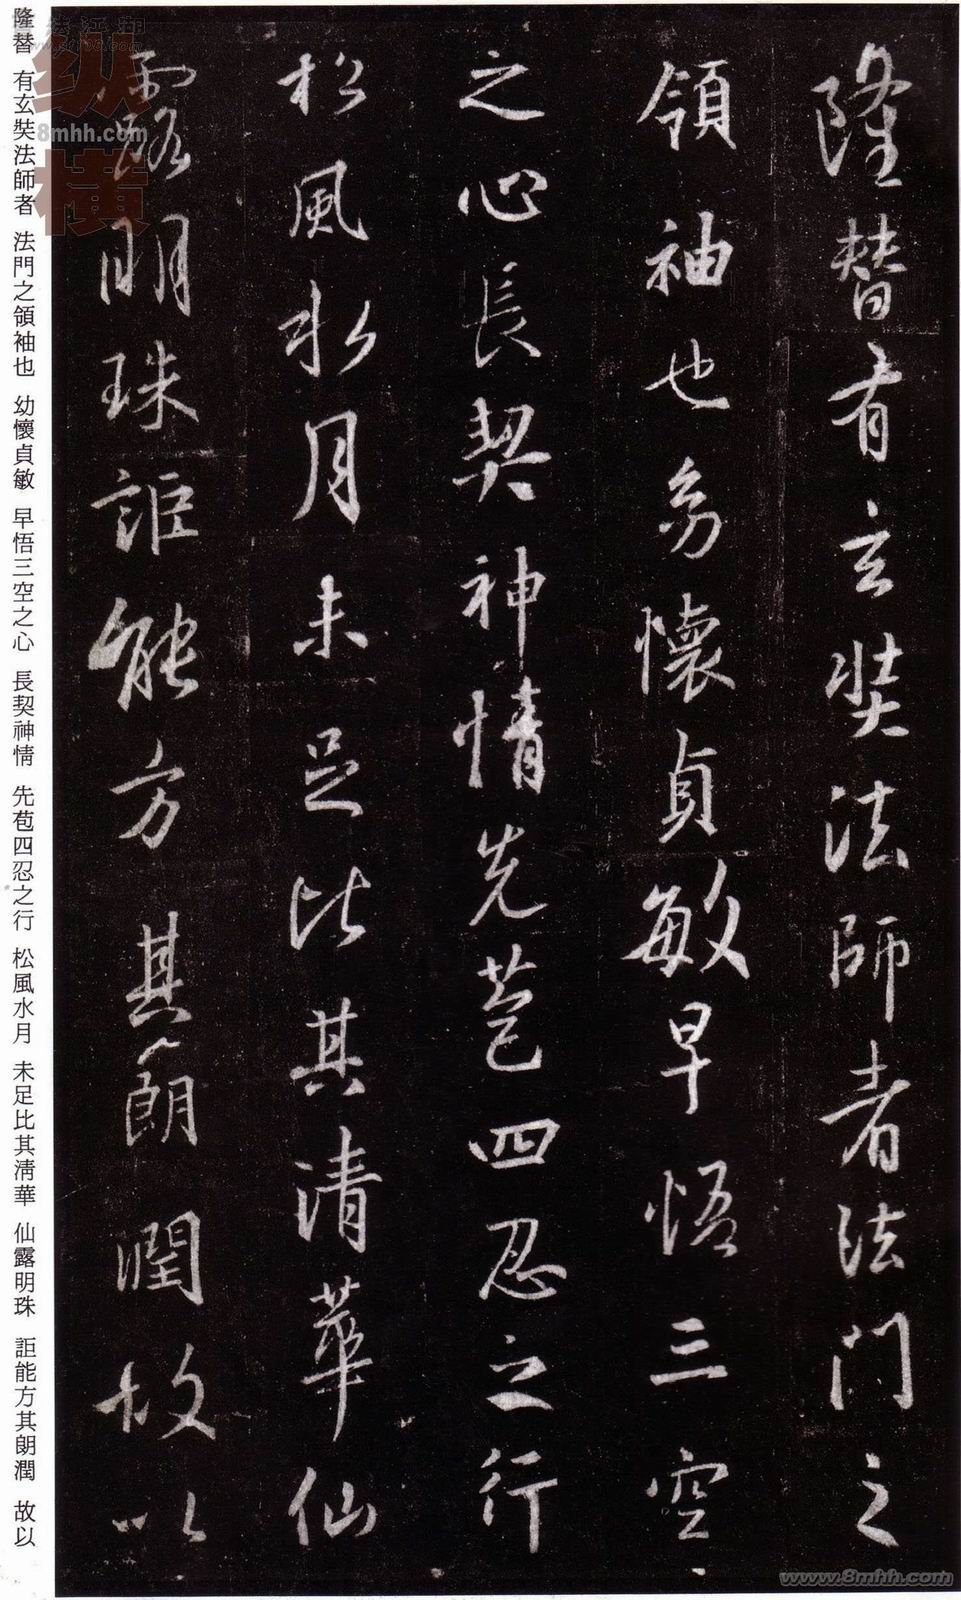 隆替有玄奘法師者法門之
領袖也幼懷貞敏早悟三空
之心長契神情先苞四忍之行
松風水月未足比其清華仙
露明珠詎能方其朗潤故以
隆替 有玄奘法師者 法門之領袖也 幼懷貞敏 早悟三空之心 長契神情 先苞四忍之行 松風水月 未足比其清華 仙露明珠 詎能方其朗潤 故以
纵横
8mhh.com
www.8mhh.com